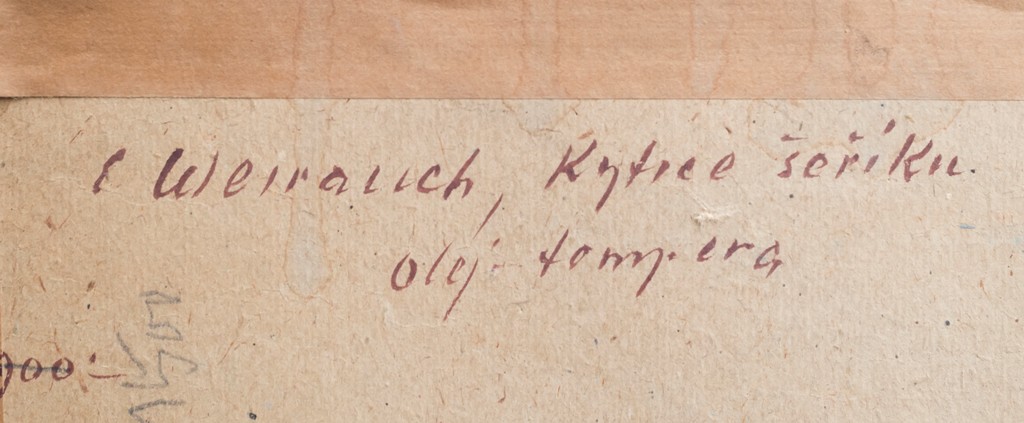 Weirauch, Kytice šeříku.
olej-tempera
900:-